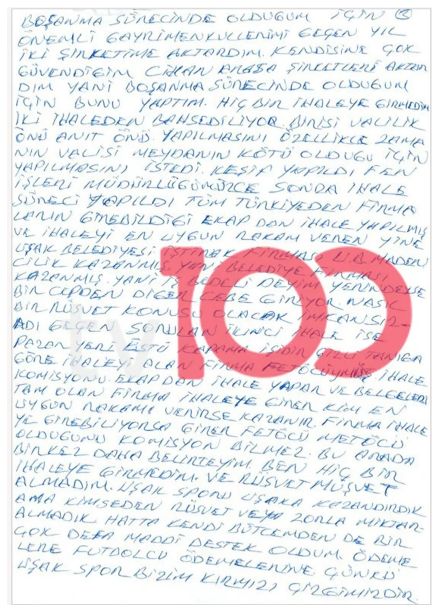 BOŞANMA SÜRECİNDE OLDUĞUM İÇİN
ÖNEMLİ GAYRİMENKULLERİMİ GEÇEN YIL
İKİ ŞİRKETİME AKTARDIM. KENDİSİNE ÇOK
GÜVENDİĞİM CİHAN ARASA ŞİRKETLERİ AKTAR
DIM YANİ BOŞANMA SÜRECİNDE OLDUĞUM
İÇİN BUNU YAPTIM. HİÇ BİR İHALEYE GİRMEDİM
İKİ İHALEDEN BAHSEDİLİYOR. BİRİSİ VALİLİK
ÖNÜ ANIT ÖNÜ YAPILMASINI ÖZELLİKLE ZAMA
NIN VALİSİ MEYDANIN KÖTÜ OLDUĞU İÇİN
YAPILMASINI İSTEDİ. KEŞİF YAPILDI FEN
İŞLERİ MÜDÜRLÜĞÜMÜZCE SONDA İHALE
SÜRECİ YAPILDI TÜM TÜRKİYEDEN FİRMA
LARIN GİREBİLDİĞİ EKAP DAN İHALE YAPILMIŞ
VE İHALEYİ EN UYGUN RAKAM VEREN YİNE
UŞAK BELEDİYESİ İŞTİRAK FİRMASI MADEN
CİLİK KAZANMIŞ YANİ BELEDİYE FİRMASI
KAZANMIŞ. YANİ İŞ BEDELİ DEYİM YERİNDEYSE
BİR CEPDEN DİĞER CEBE GİRİYOR. NASIL
BİR RÜŞVET KONUSU OLACAK İMKANSIZ.
ADI GEÇEN SORULAN İKİNCİ İHALE İSE
PAZAR YERİ ÜSTÜ KAPAMA İŞİDİR GİZLİ TANIĞA
GÖRE İHALEYİ ALAN FİRMA FETÖCÜYMÜŞ İHALE
KOMİSYONU EKAPDAN İHALE YAPAR VE BELGELERİ
TAM OLAN FİRMA İHALEYE GİRER KİM EN
UYGUN RAKAMI VERİRSE KAZANIR. FİRMA İHALE
YE GİREBİLİYORSA GİRER FETÖCÜ METÖCÜ
OLDUĞUNU KOMİSYON BİLMEZ. BU ARADA
BİRKEZ DAHA BELİRTEYİM BEN HİÇ BİR
İHALEYE GİRMEDİM. VE RÜŞVET MÜŞVET
ALMADIM. UŞAK SPORU UŞAKA KAZANDIRDIK
AMA KİMSEDEN RÜŞVET VEYA ZORLA MİKTAR
ALMADIK HATTA KENDİ BÜTCEMDEN DE BİR
ÇOK DEFA MADDİ DESTEK OLDUM. ÖDEME
LERE FUTBOLCU ÖDEMELERİNE. ÇÜNKÜ
UŞAK SPOR BİZİM KIRMIZI ÇİZGİMİZDİR.
tv100